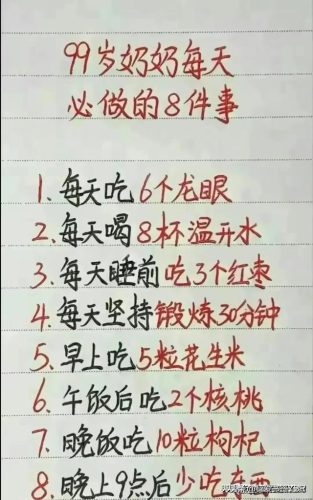 99岁奶奶每天
必做的8件事
1.每天吃6个龙眼
2.每天喝8杯温开水
3.每天睡前吃3个红枣
4.每天坚持锻炼30分钟
5.早上吃5粒花生米
6.午饭后吃2个核桃
7.晚饭吃10粒枸杞
8.晚上9点后少吃东西